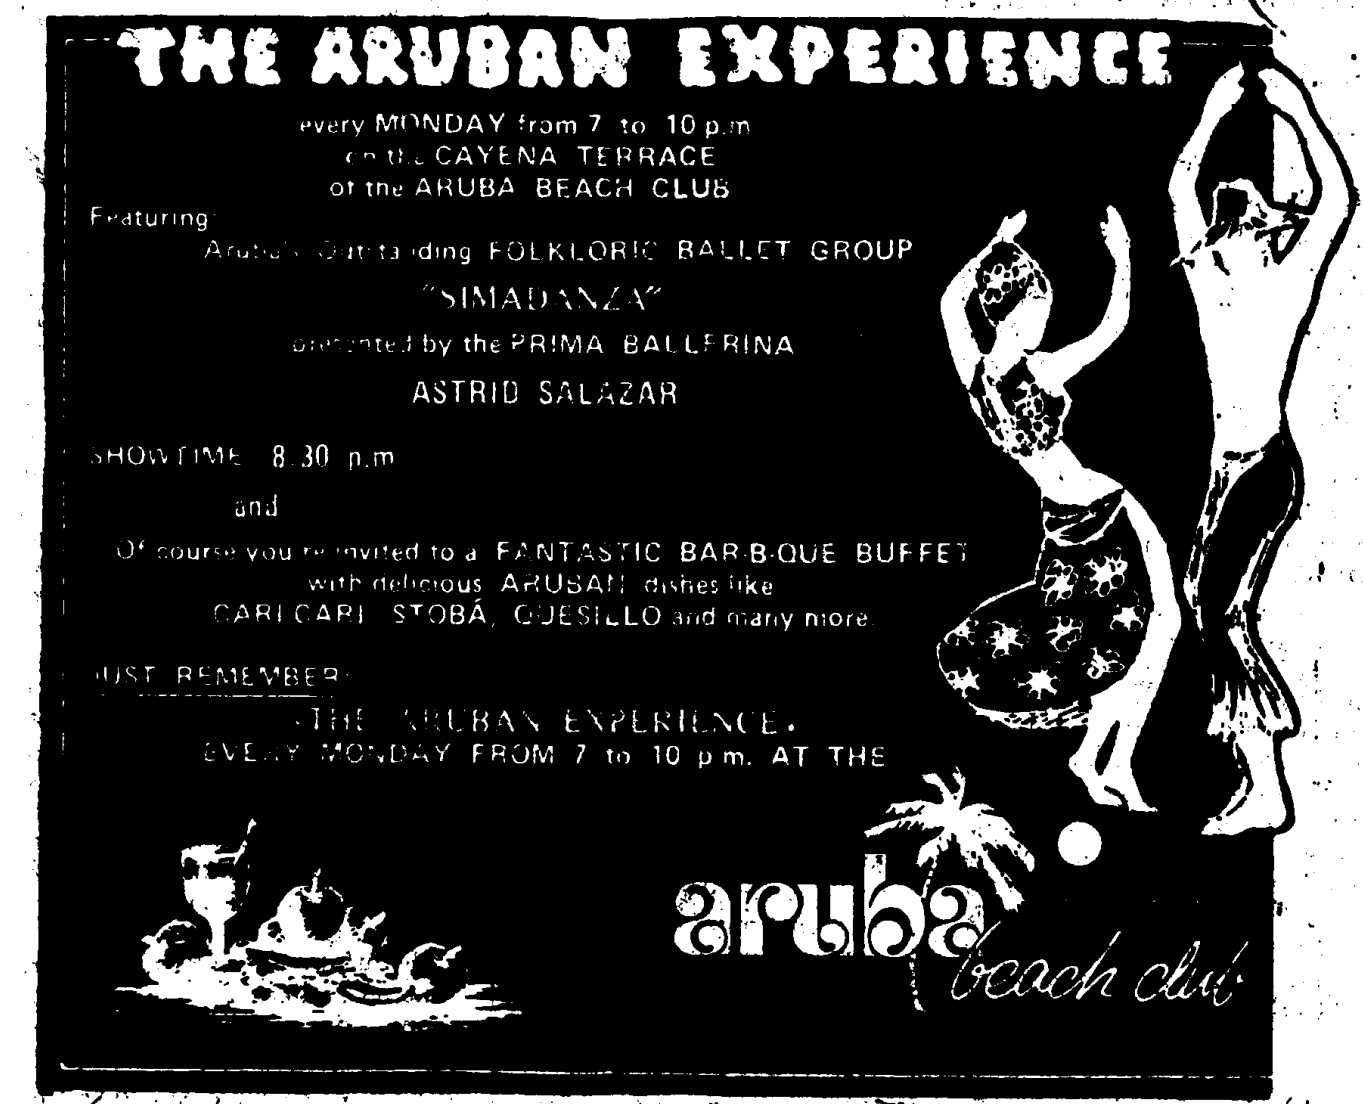 THE ARUBAN EXPERIENCE
every MONDAY from 7 to 10 p.m
on the CAYENA TERRACE
of the ARUBA BEACH CLUB
Featuring:
Aruba's Outstanding FOLKLORIC BALLET GROUP
"SIMADANZA"
presented by the PRIMA BALLERINA
ASTRID SALAZAR
SHOWTIME 8.30 p.m
and
Of course you're invited to a FANTASTIC BAR-B-QUE BUFFET
with delicious ARUBAN dishes like
CARI CARI, STOBÁ, QUESILLO and many more.
JUST REMEMBER:
"THE ARUBAN EXPERIENCE"
EVERY MONDAY FROM 7 to 10 p.m. AT THE
aruba
beach club